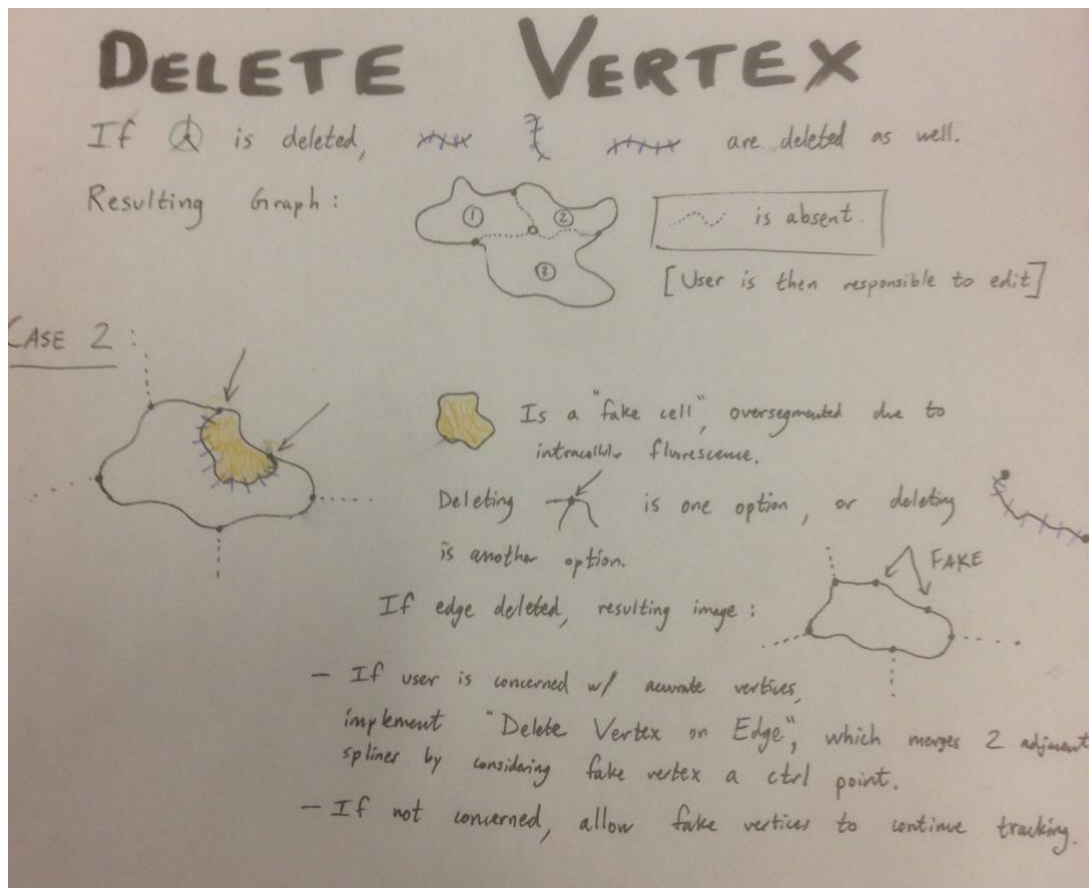 DELETE VERTEX
If is deleted, are deleted as well.
Resulting Graph:
1
2
3
is absent.
[User is then responsible to edit]
CASE 2:
Is a "fake cell", oversegmented due to
flurescence.
Deleting is one option, or deleting
is another option.
FAKE
If edge deleted, resulting image:
- If user is concerned w/ accurate vertices,
implement "Delete Vertex on Edge", which merges 2 adjacent
splines by considering fake vertex a ctrl point.
- If not concerned, allow fake vertices to continue tracking.